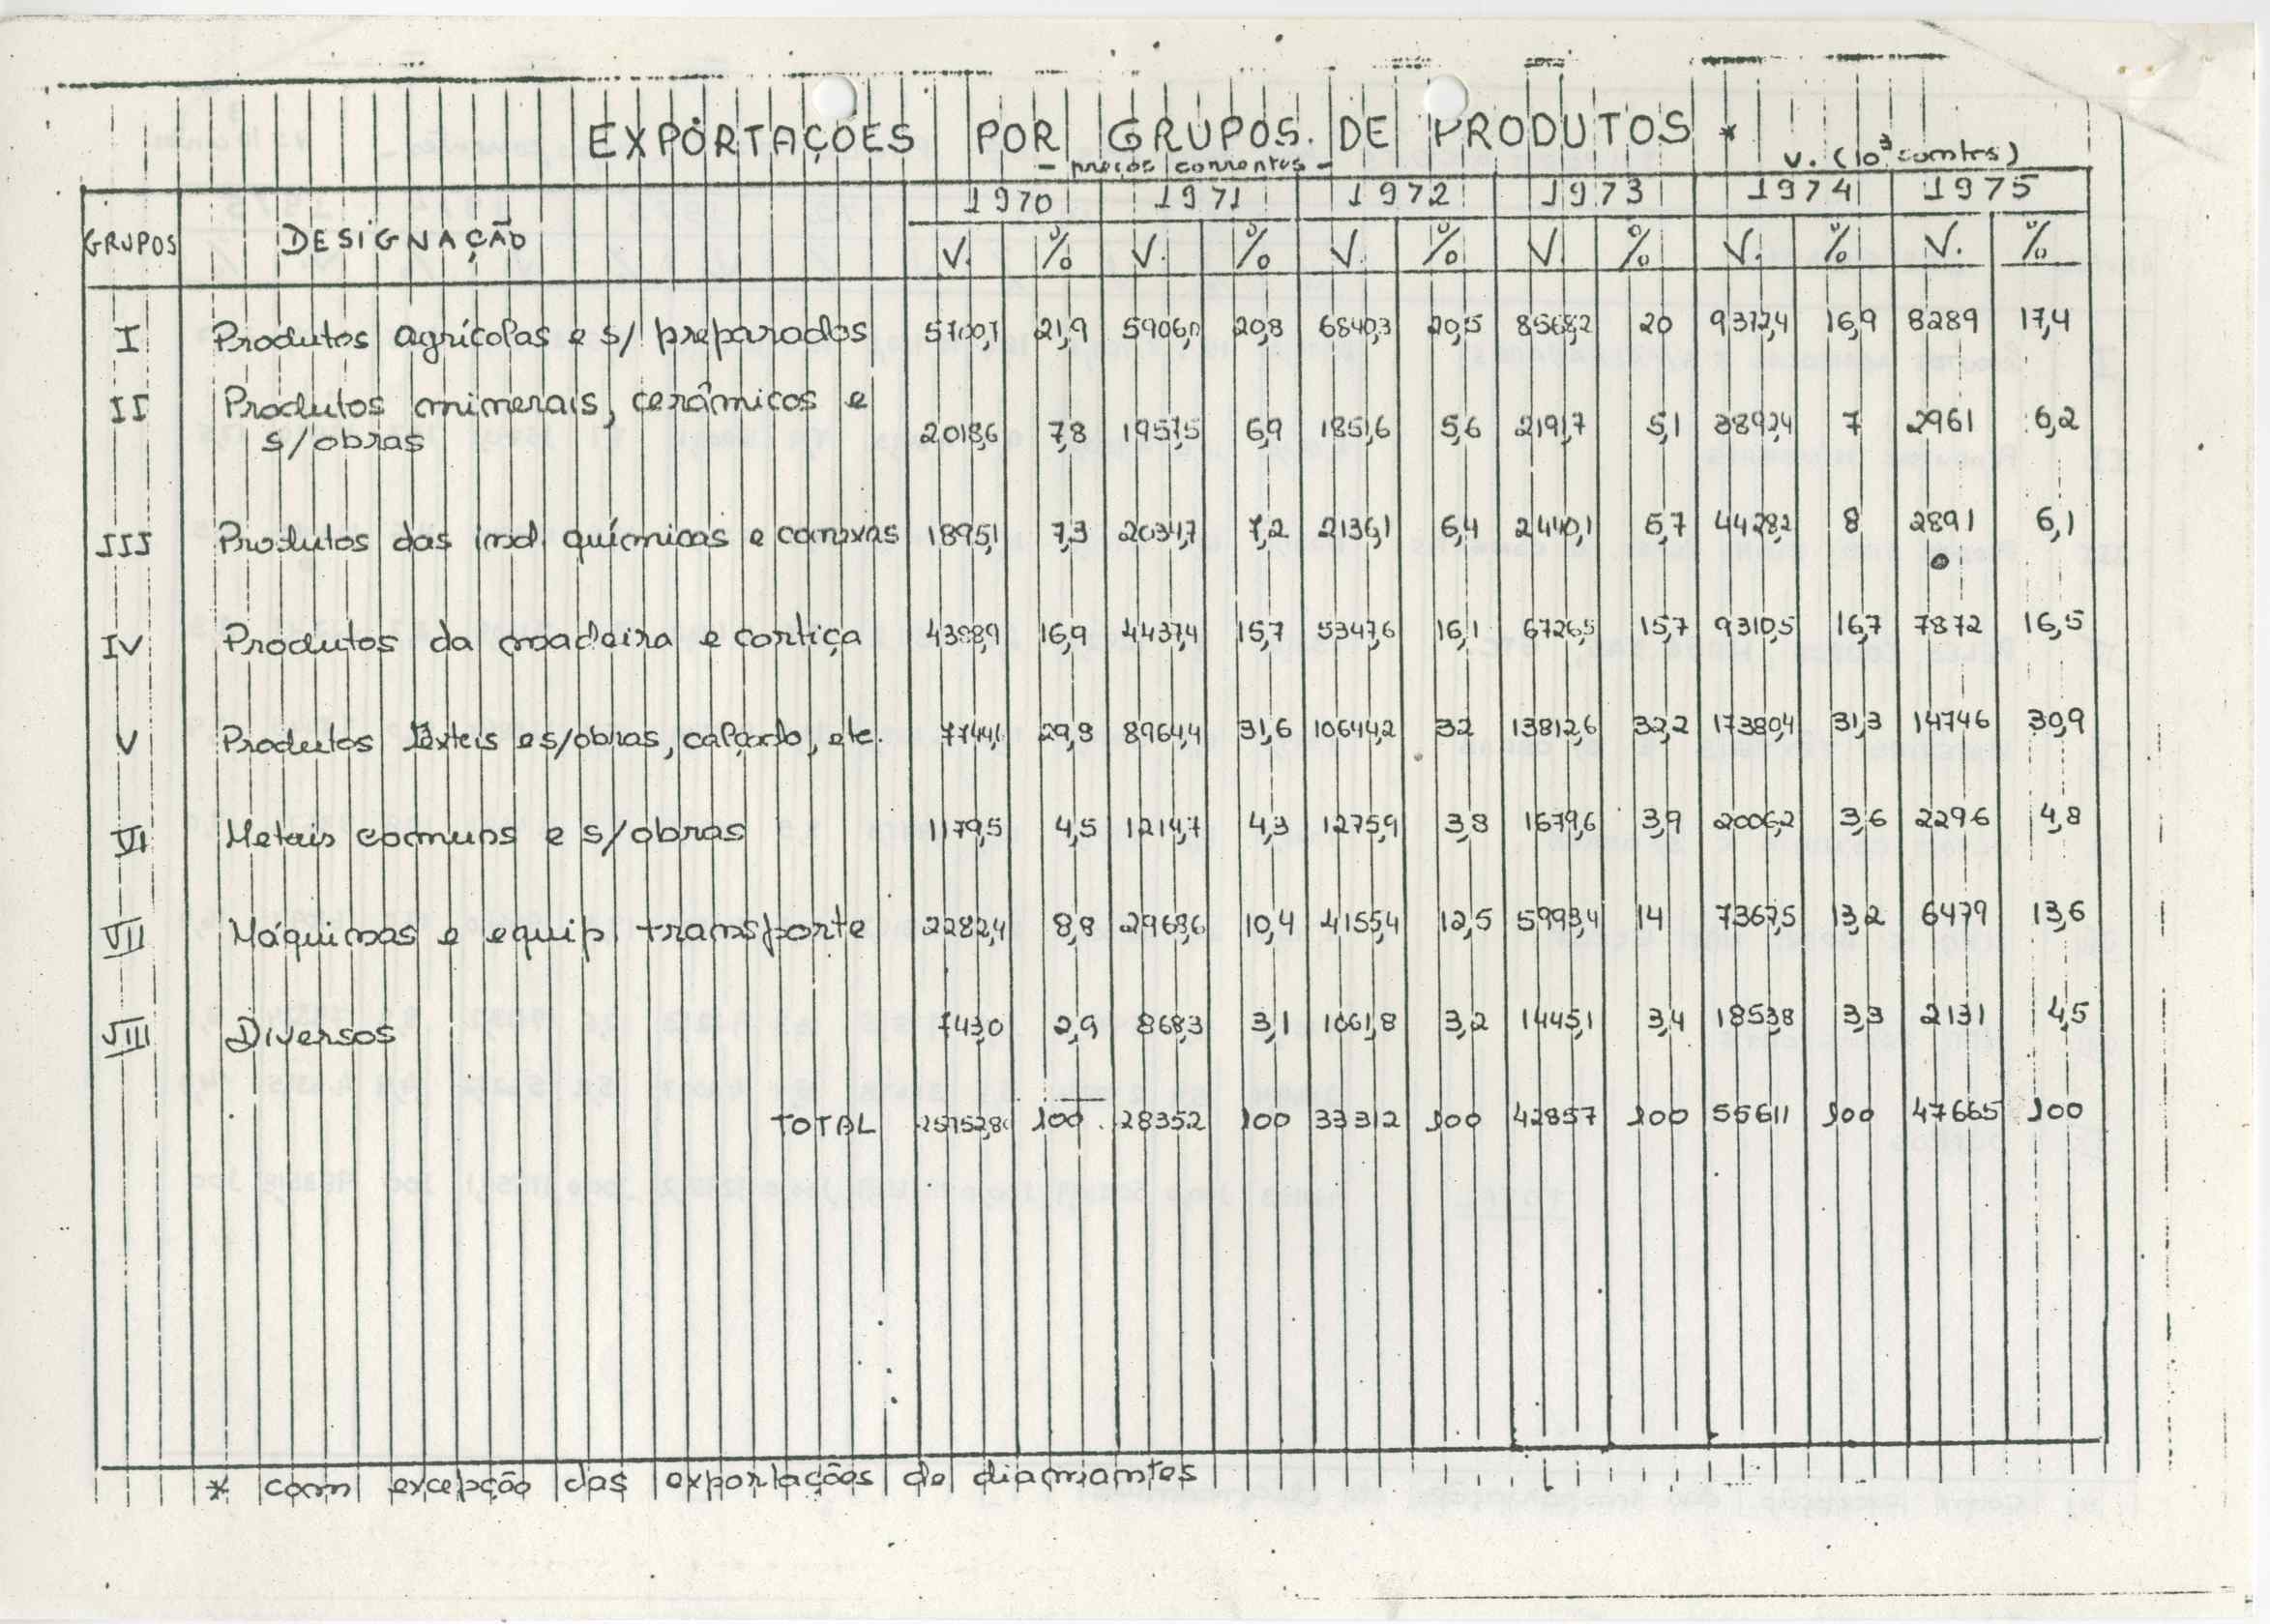 EXPORTAÇÕES POR GRUPOS DE PRODUTOS *
- preços correntes -
V. (10³ contos)
GRUPOS DESIGNAÇÃO 1970 1971 1972 1973 1974 1975
V. % V. % V. % V. % V. % V. %
I Produtos agrícolas e s/ preparados 5700,7 21,9 5906,0 20,8 6840,3 20,5 8568,2 20 9372,4 16,9 8289 17,4
II Produtos minerais, cerâmicos e
s/obras 2018,6 7,8 1957,5 6,9 1851,6 5,6 2191,7 5,1 3892,4 7 2961 6,2
III Produtos das ind. químicas e conexas 1895,1 7,3 2034,7 7,2 2136,1 6,4 2440,1 5,7 4428,2 8 2891 6,1
IV Produtos da madeira e cortiça 4388,9 16,9 4437,4 15,7 5347,6 16,1 6726,5 15,7 9310,5 16,7 7872 16,5
V Produtos Têxteis e s/obras, calçado, etc. 7744,6 29,8 8964,4 31,6 10644,2 32 13812,6 32,2 17380,4 31,3 14746 30,9
VI Metais comuns e s/obras 1179,5 4,5 1214,7 4,3 1275,9 3,8 1679,6 3,9 2006,2 3,6 2296 4,8
VII Máquinas e equip. transporte 2282,4 8,8 2968,6 10,4 4155,4 12,5 5993,4 14 7367,5 13,2 6479 13,6
VIII Diversos 743,0 2,9 868,3 3,1 1061,8 3,2 1445,1 3,4 1853,8 3,3 2131 4,5
TOTAL 100 28352 100 33312 100 42857 100 55611 100 47665 100
* com excepção das exportações de diamantes